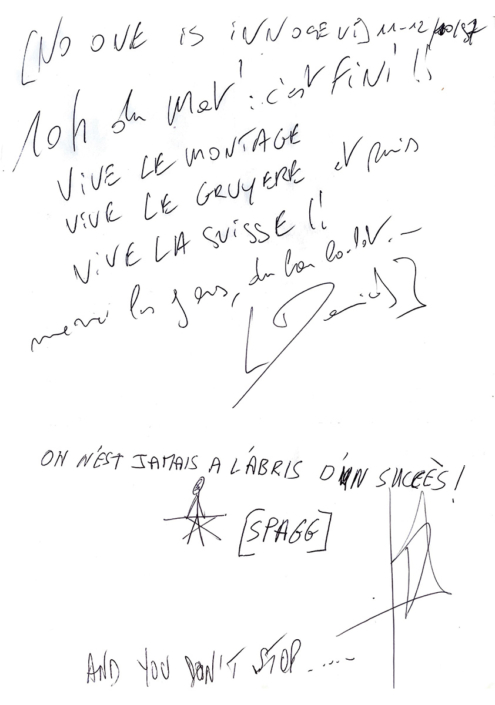 [NO ONE IS INNOCENT] 11-12/10/97
10h du mat' : c'est FINI !!
VIVE LE MONTAGE
VIVE LE GRUYERE et puis
VIVE LA SUISSE !!
merci les gens, du bon boulot. —
[Denis]
ON N'EST JAMAIS A L'ABRIS D'UN SUCCÈS !
[SPAGG]
AND YOU DON'T STOP......